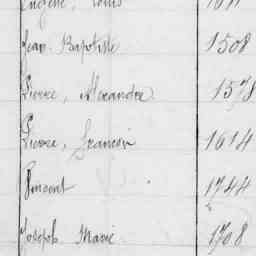 Eugène, Louis
Jean Baptiste 1508
Pierre, Alexandre 1578
Pierre, François 1614
Vincent 1744
Joseph Marie 1708